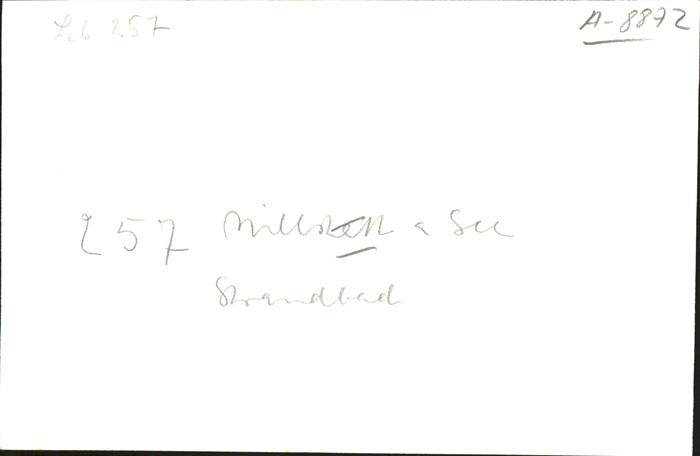 Leb 257
A-8872
257 Millstatt a See
Strandbad